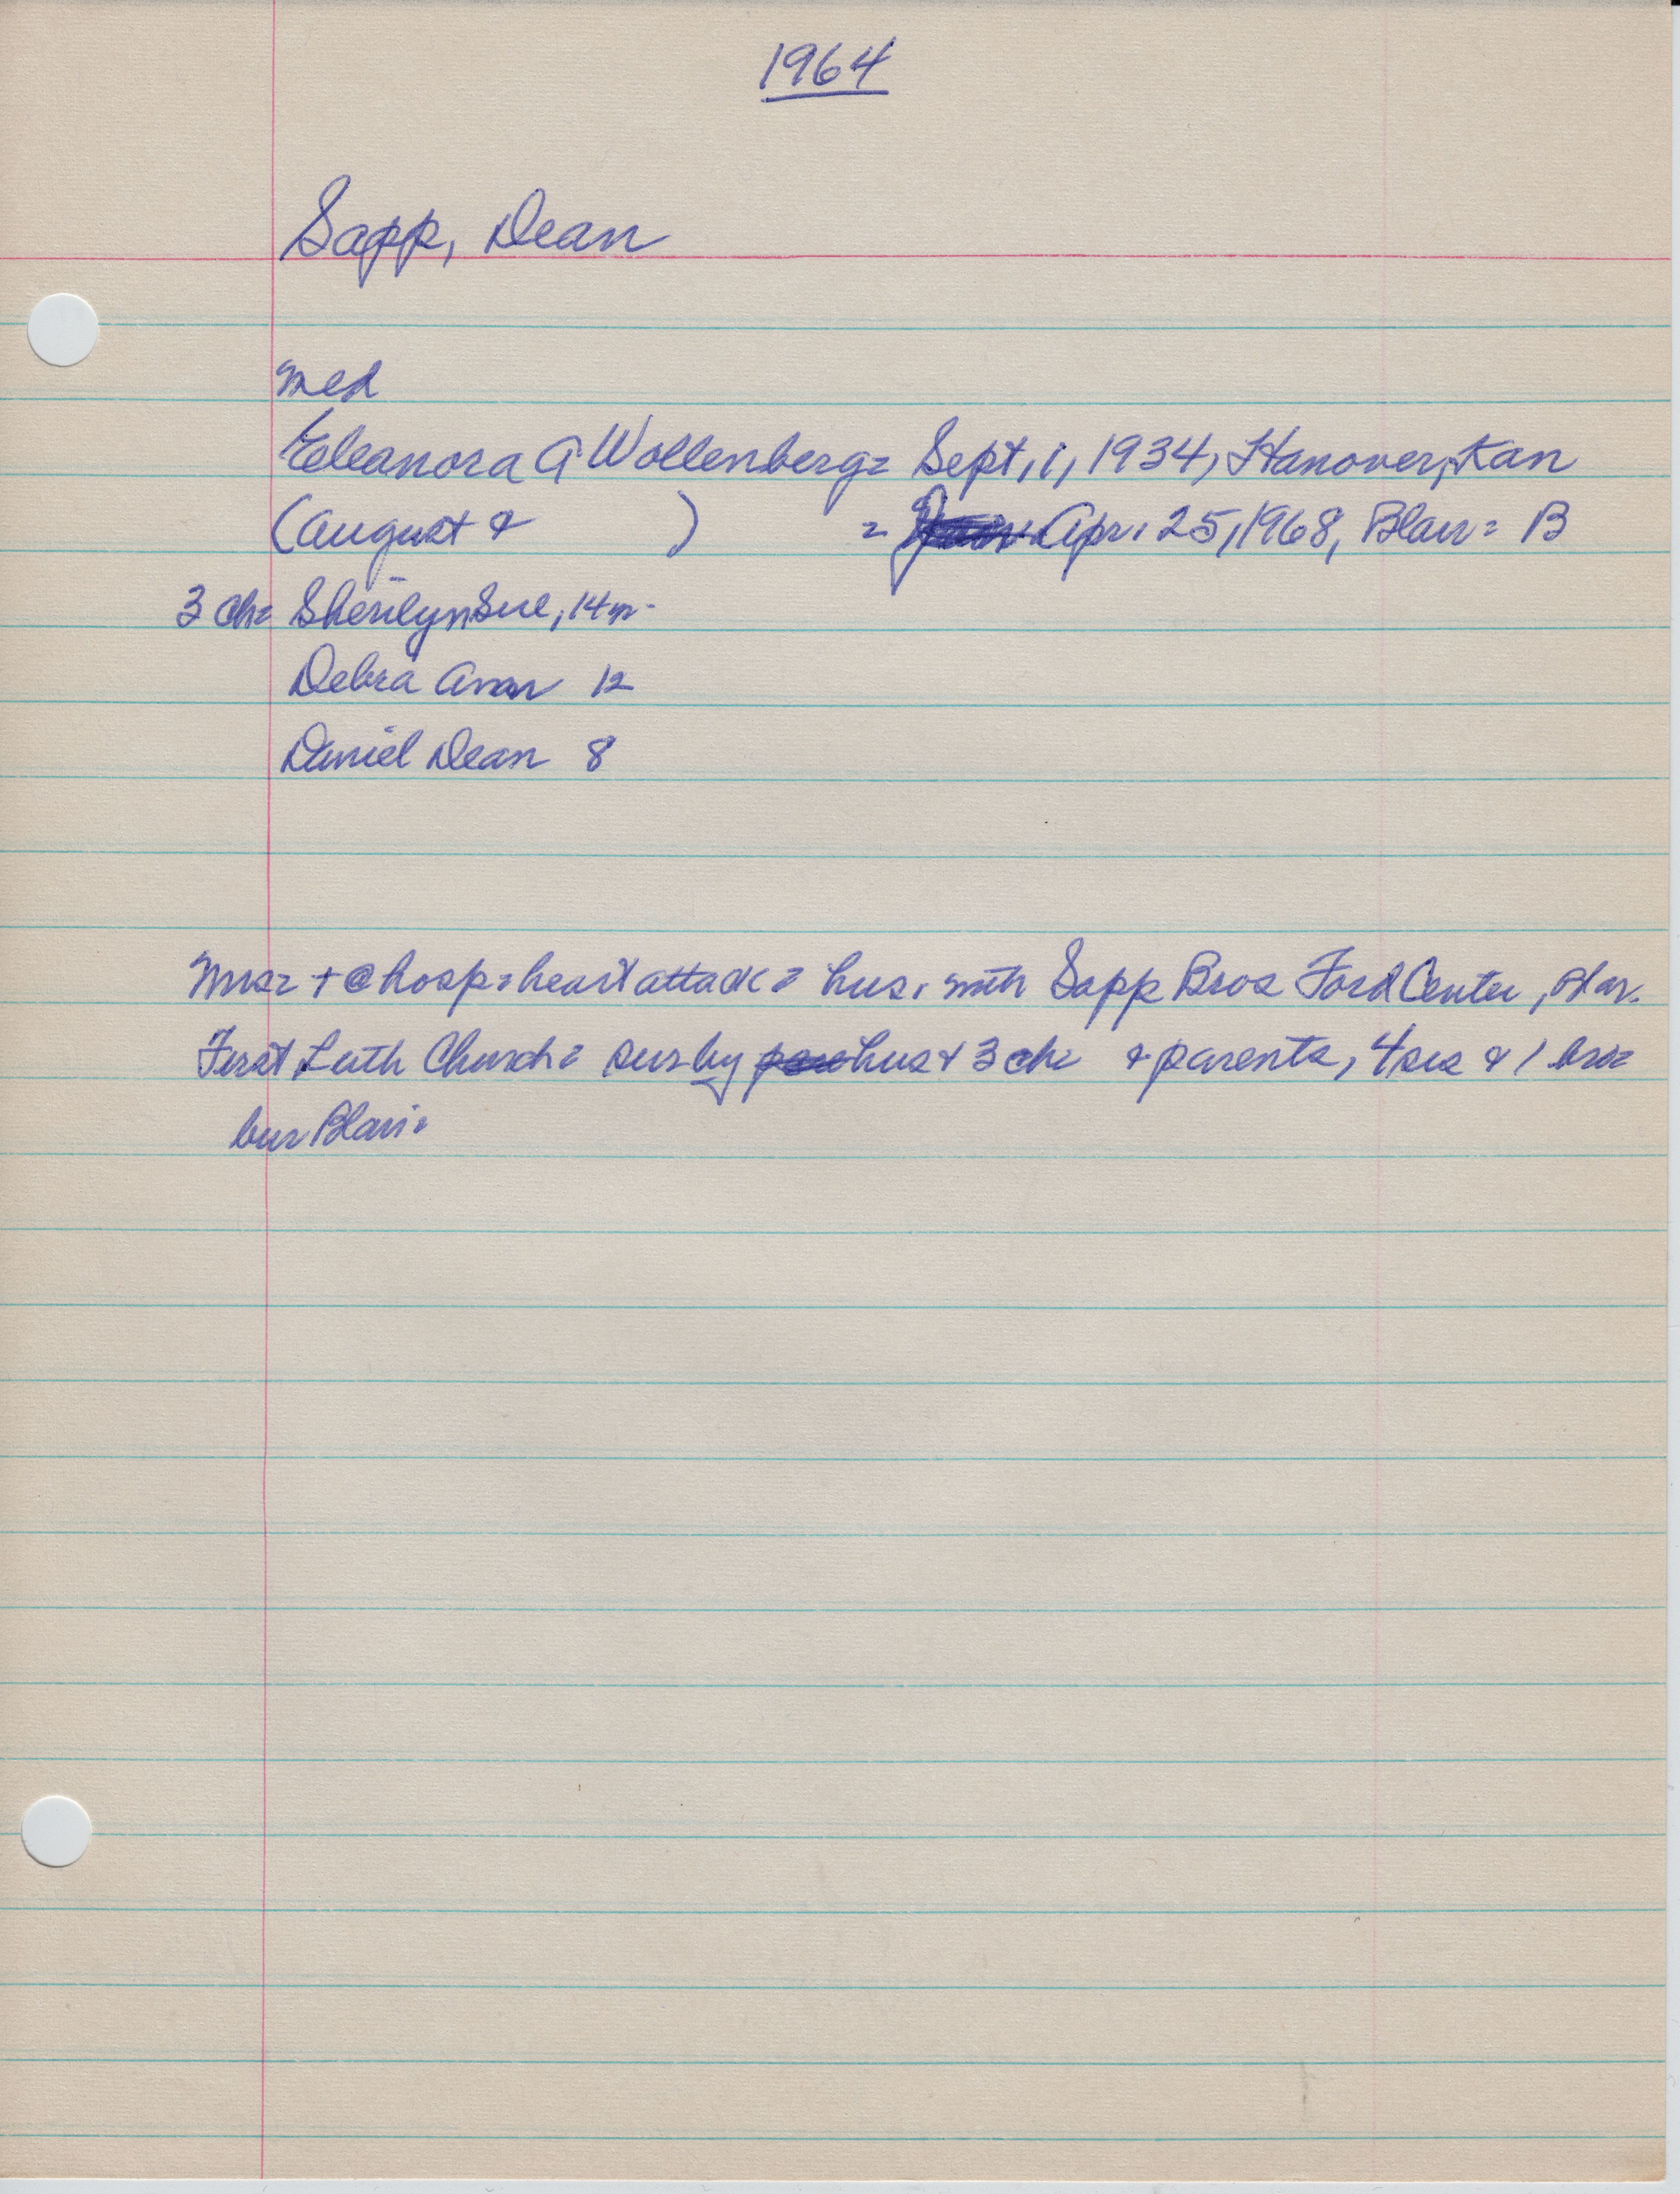 1964
Sapp, Dean
med
Eleanora A Wollenberg= Sept, 1, 1934, Hanover, Kan
(August & ) = Apr. 25, 1968, Blair= B
3 ch= Sherilyn Sue, 14
Debra Ann 12
Daniel Dean 8
Mrs= + @ hosp= heart attack= hus. with Sapp Bros Ford Center, Blair.
First Luth Church= sur by hus & 3 ch= & parents, 4 sis & 1 bro=
bur Blair=